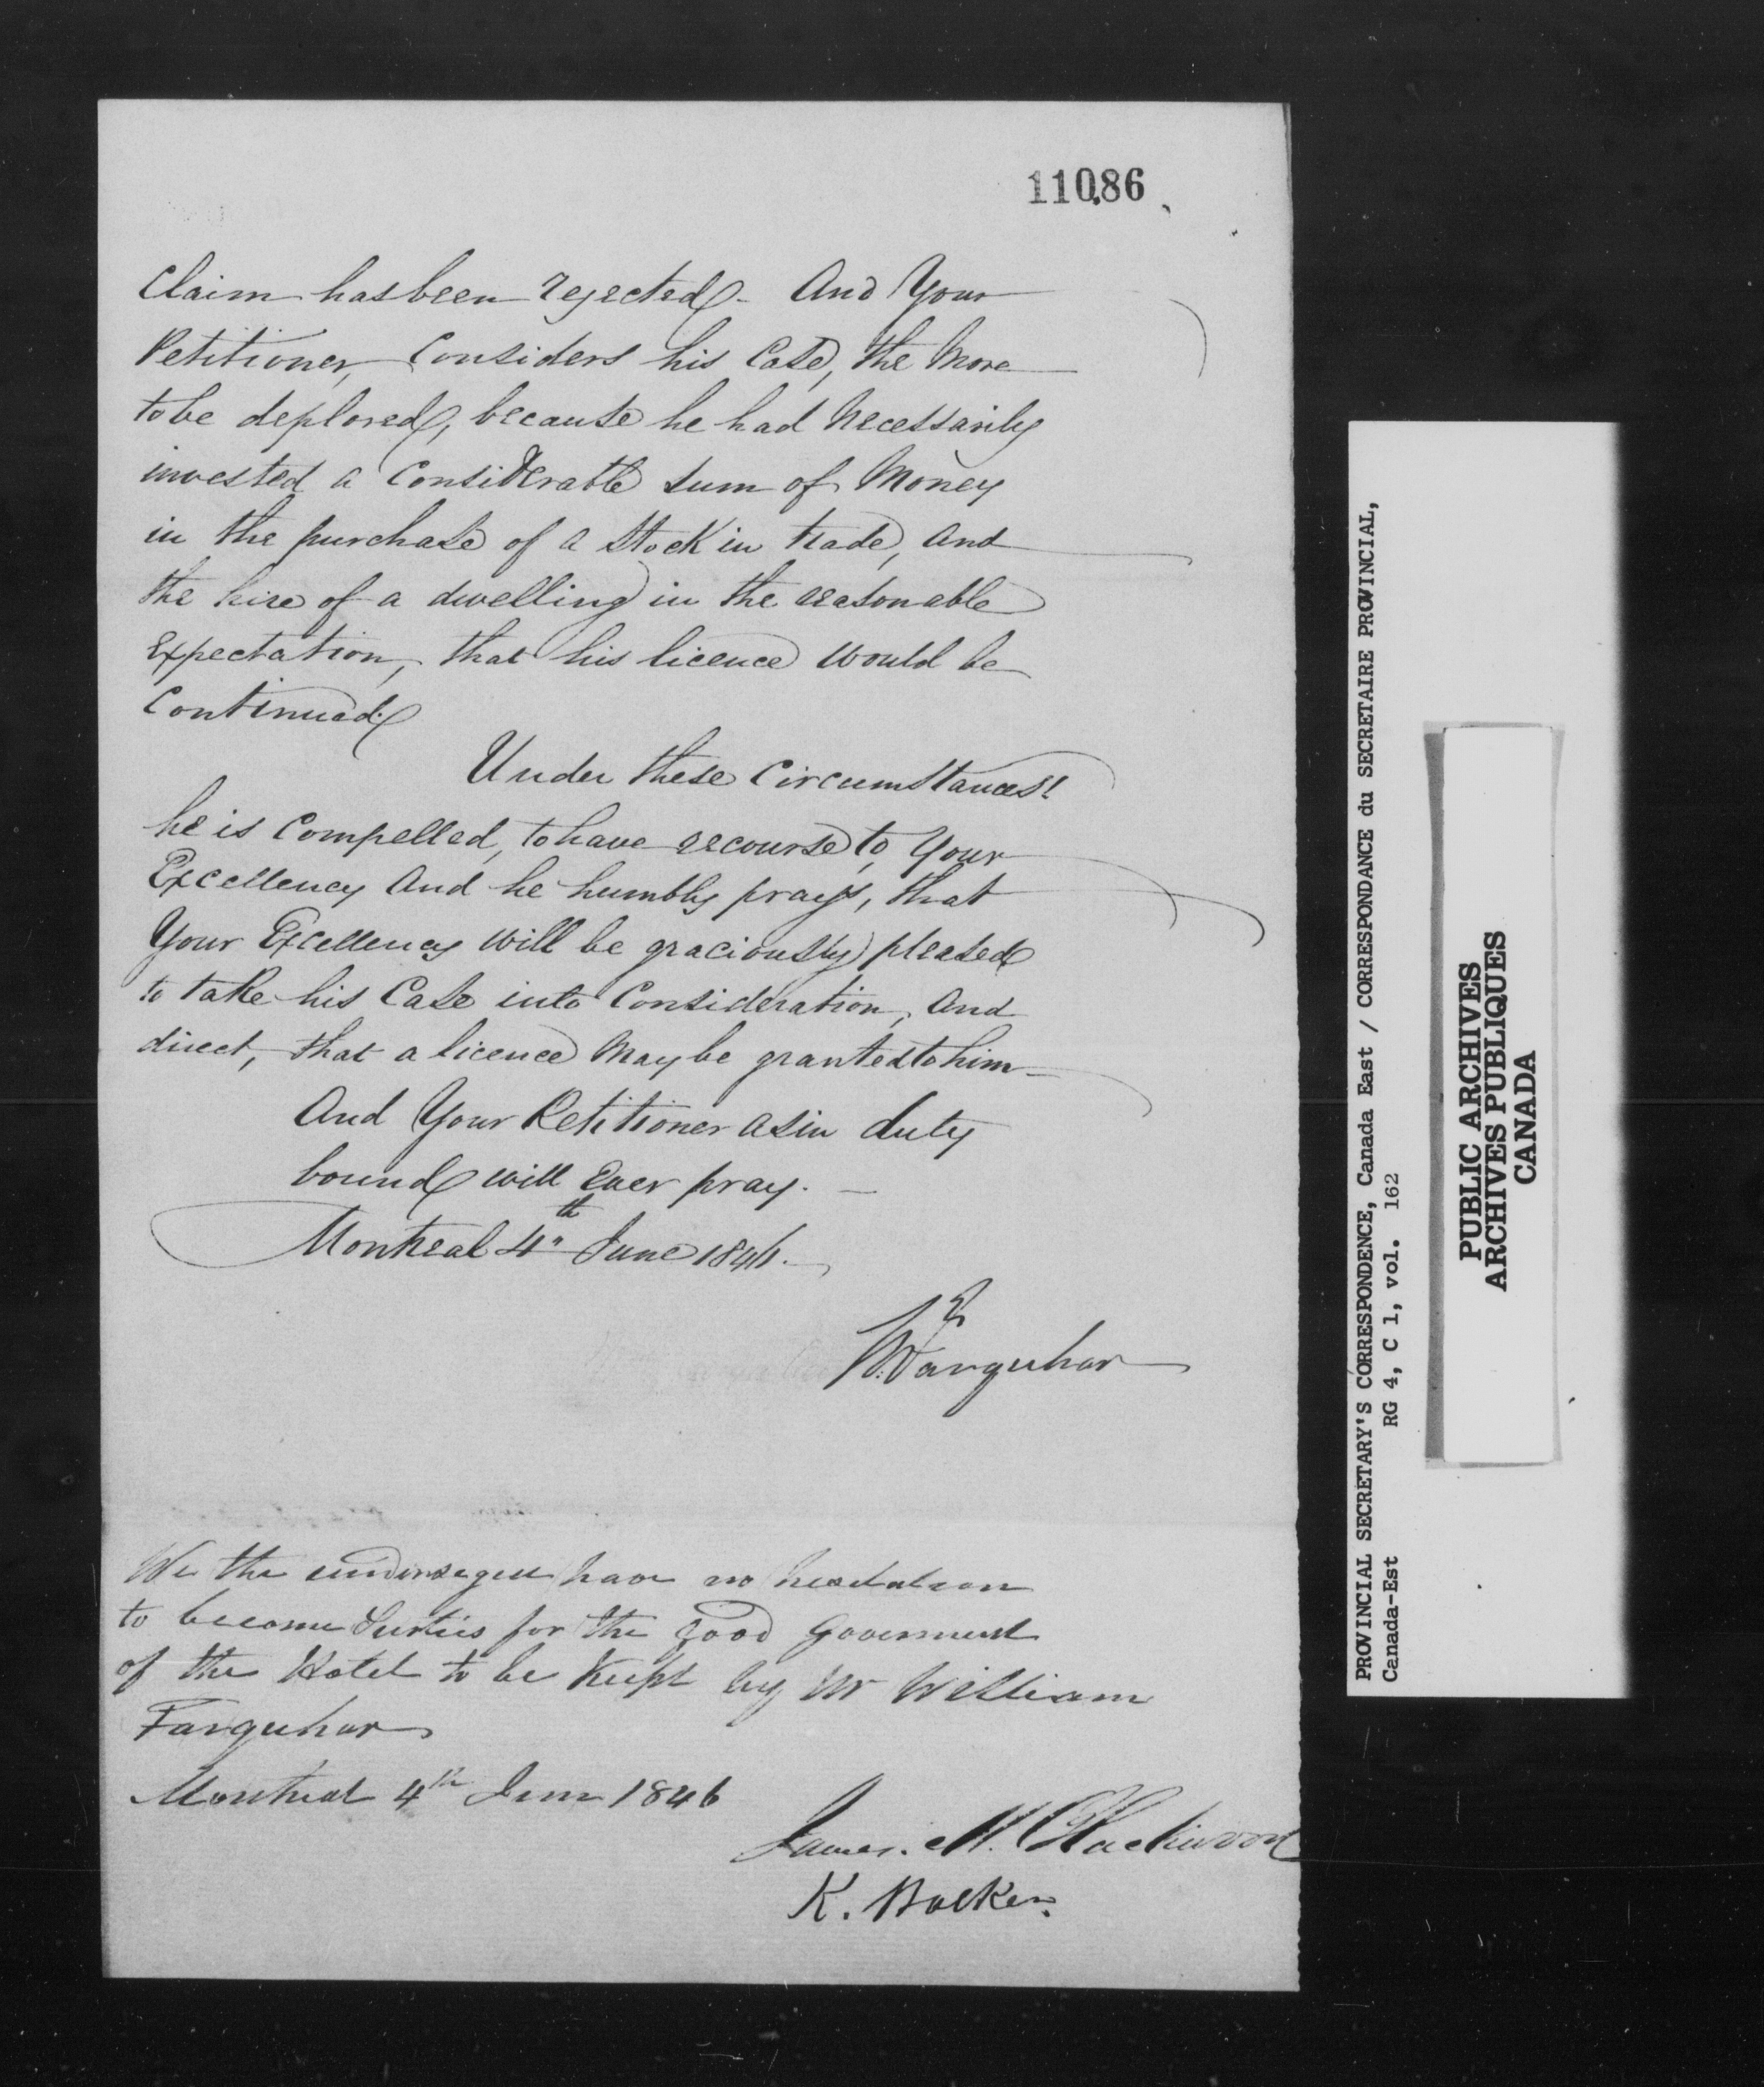 11086
Claim has been rejected - And Your
Petitioner, Considers his Case, the More
to be deplored, because he had Necessarily
invested a Considerable Sum of Money
in the purchase of a Stock in trade, and
the hire of a dwelling in the reasonable
Expectation, that his licence would be
Continued.
Under these Circumstances!
he is Compelled, to have recourse to Your
Excellency And he humbly prays, that
Your Excellency will be graciously pleased
to take his Case into Consideration, And
direct, that a licence May be granted to him
And Your Petitioner as in duty
bound will Ever pray. -
Montreal 4th June 1846.
W. Farquhar
We the undersigned have no hesitation
to become Surties for the good Goverment
of the Hotel to be Kept by Mr William
Farquhar
Montreal 4th June 1846
James. M. Blackwood
K.
PROVINCIAL SECRETARY'S CORRESPONDENCE, Canada East / CORRESPONDANCE du SECRETAIRE PROVINCIAL,
Canada-Est RG 4, C 1, vol. 162
PUBLIC ARCHIVES
ARCHIVES PUBLIQUES
CANADA